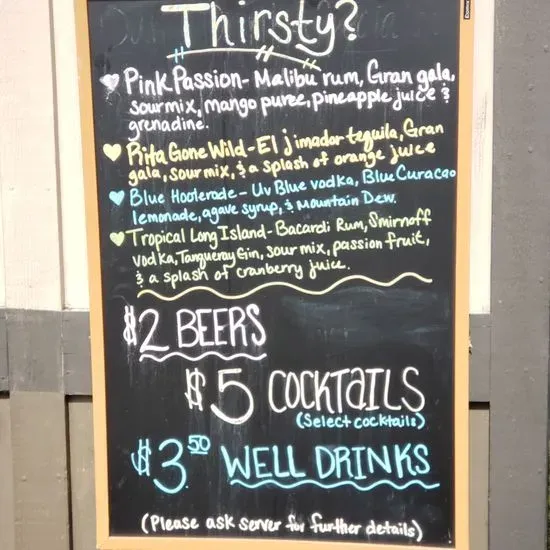 Thirsty?
Pink Passion- Malibu rum, Gran gala,
sour mix, mango puree, pineapple juice &
grenadine.
Rita Gone Wild - El jimador tequila, Gran
gala, sour mix, & a splash of orange juice
Blue Hooterade - UV Blue vodka, Blue Curacao
lemonade, agave syrup, & Mountain Dew.
Tropical Long Island - Bacardi Rum, Smirnoff
vodka, Tanqueray Gin, sour mix, passion fruit,
& a splash of cranberry juice.
$2 BEERS
$5 COCKTAILS
(Select cocktails)
$3.50 WELL DRINKS
(Please ask server for further details)